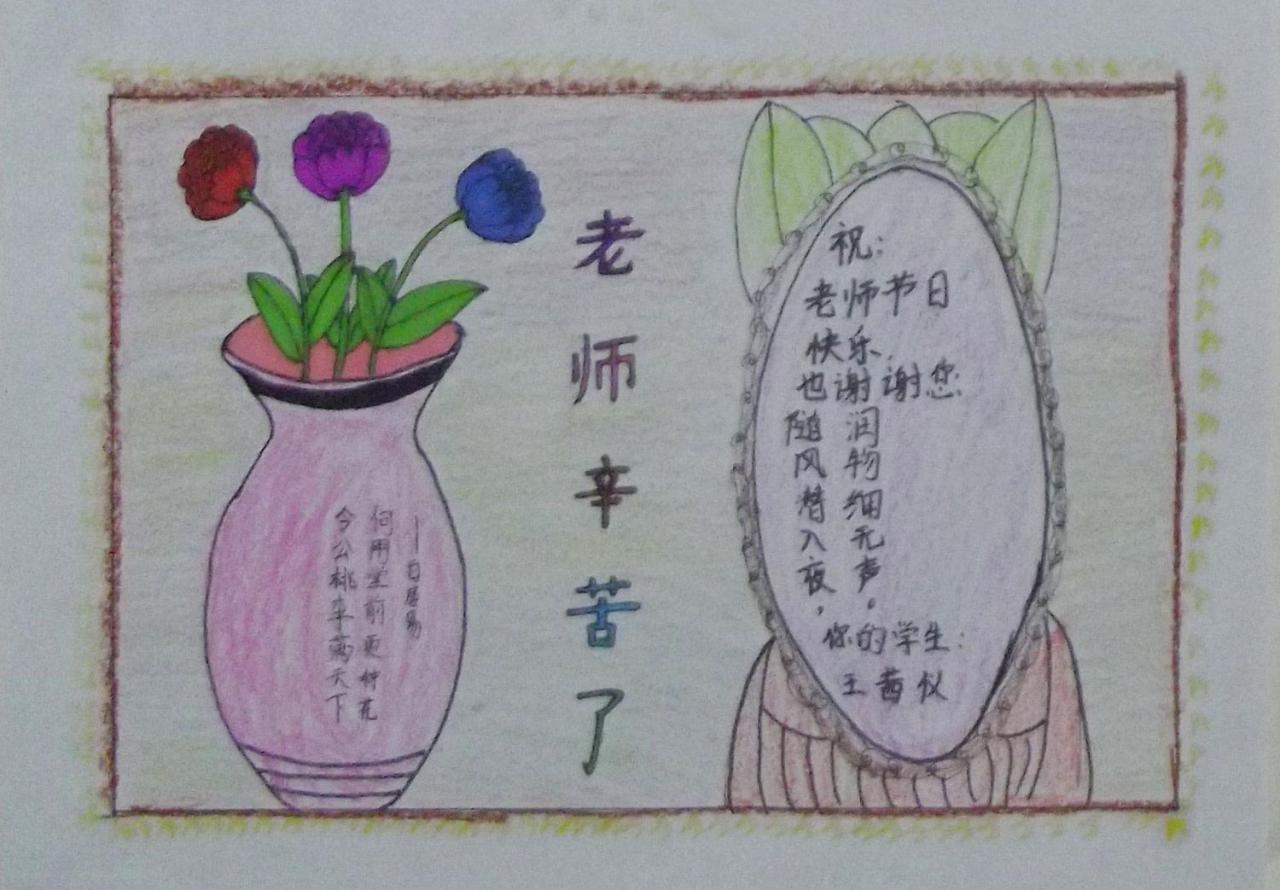 今公桃李满天下
何用堂前更种花
——白居易
老师辛苦了
祝：
老师节日
快乐，
也谢谢您
随风潜入夜，
润物细无声。
你的学生：
王茜仪